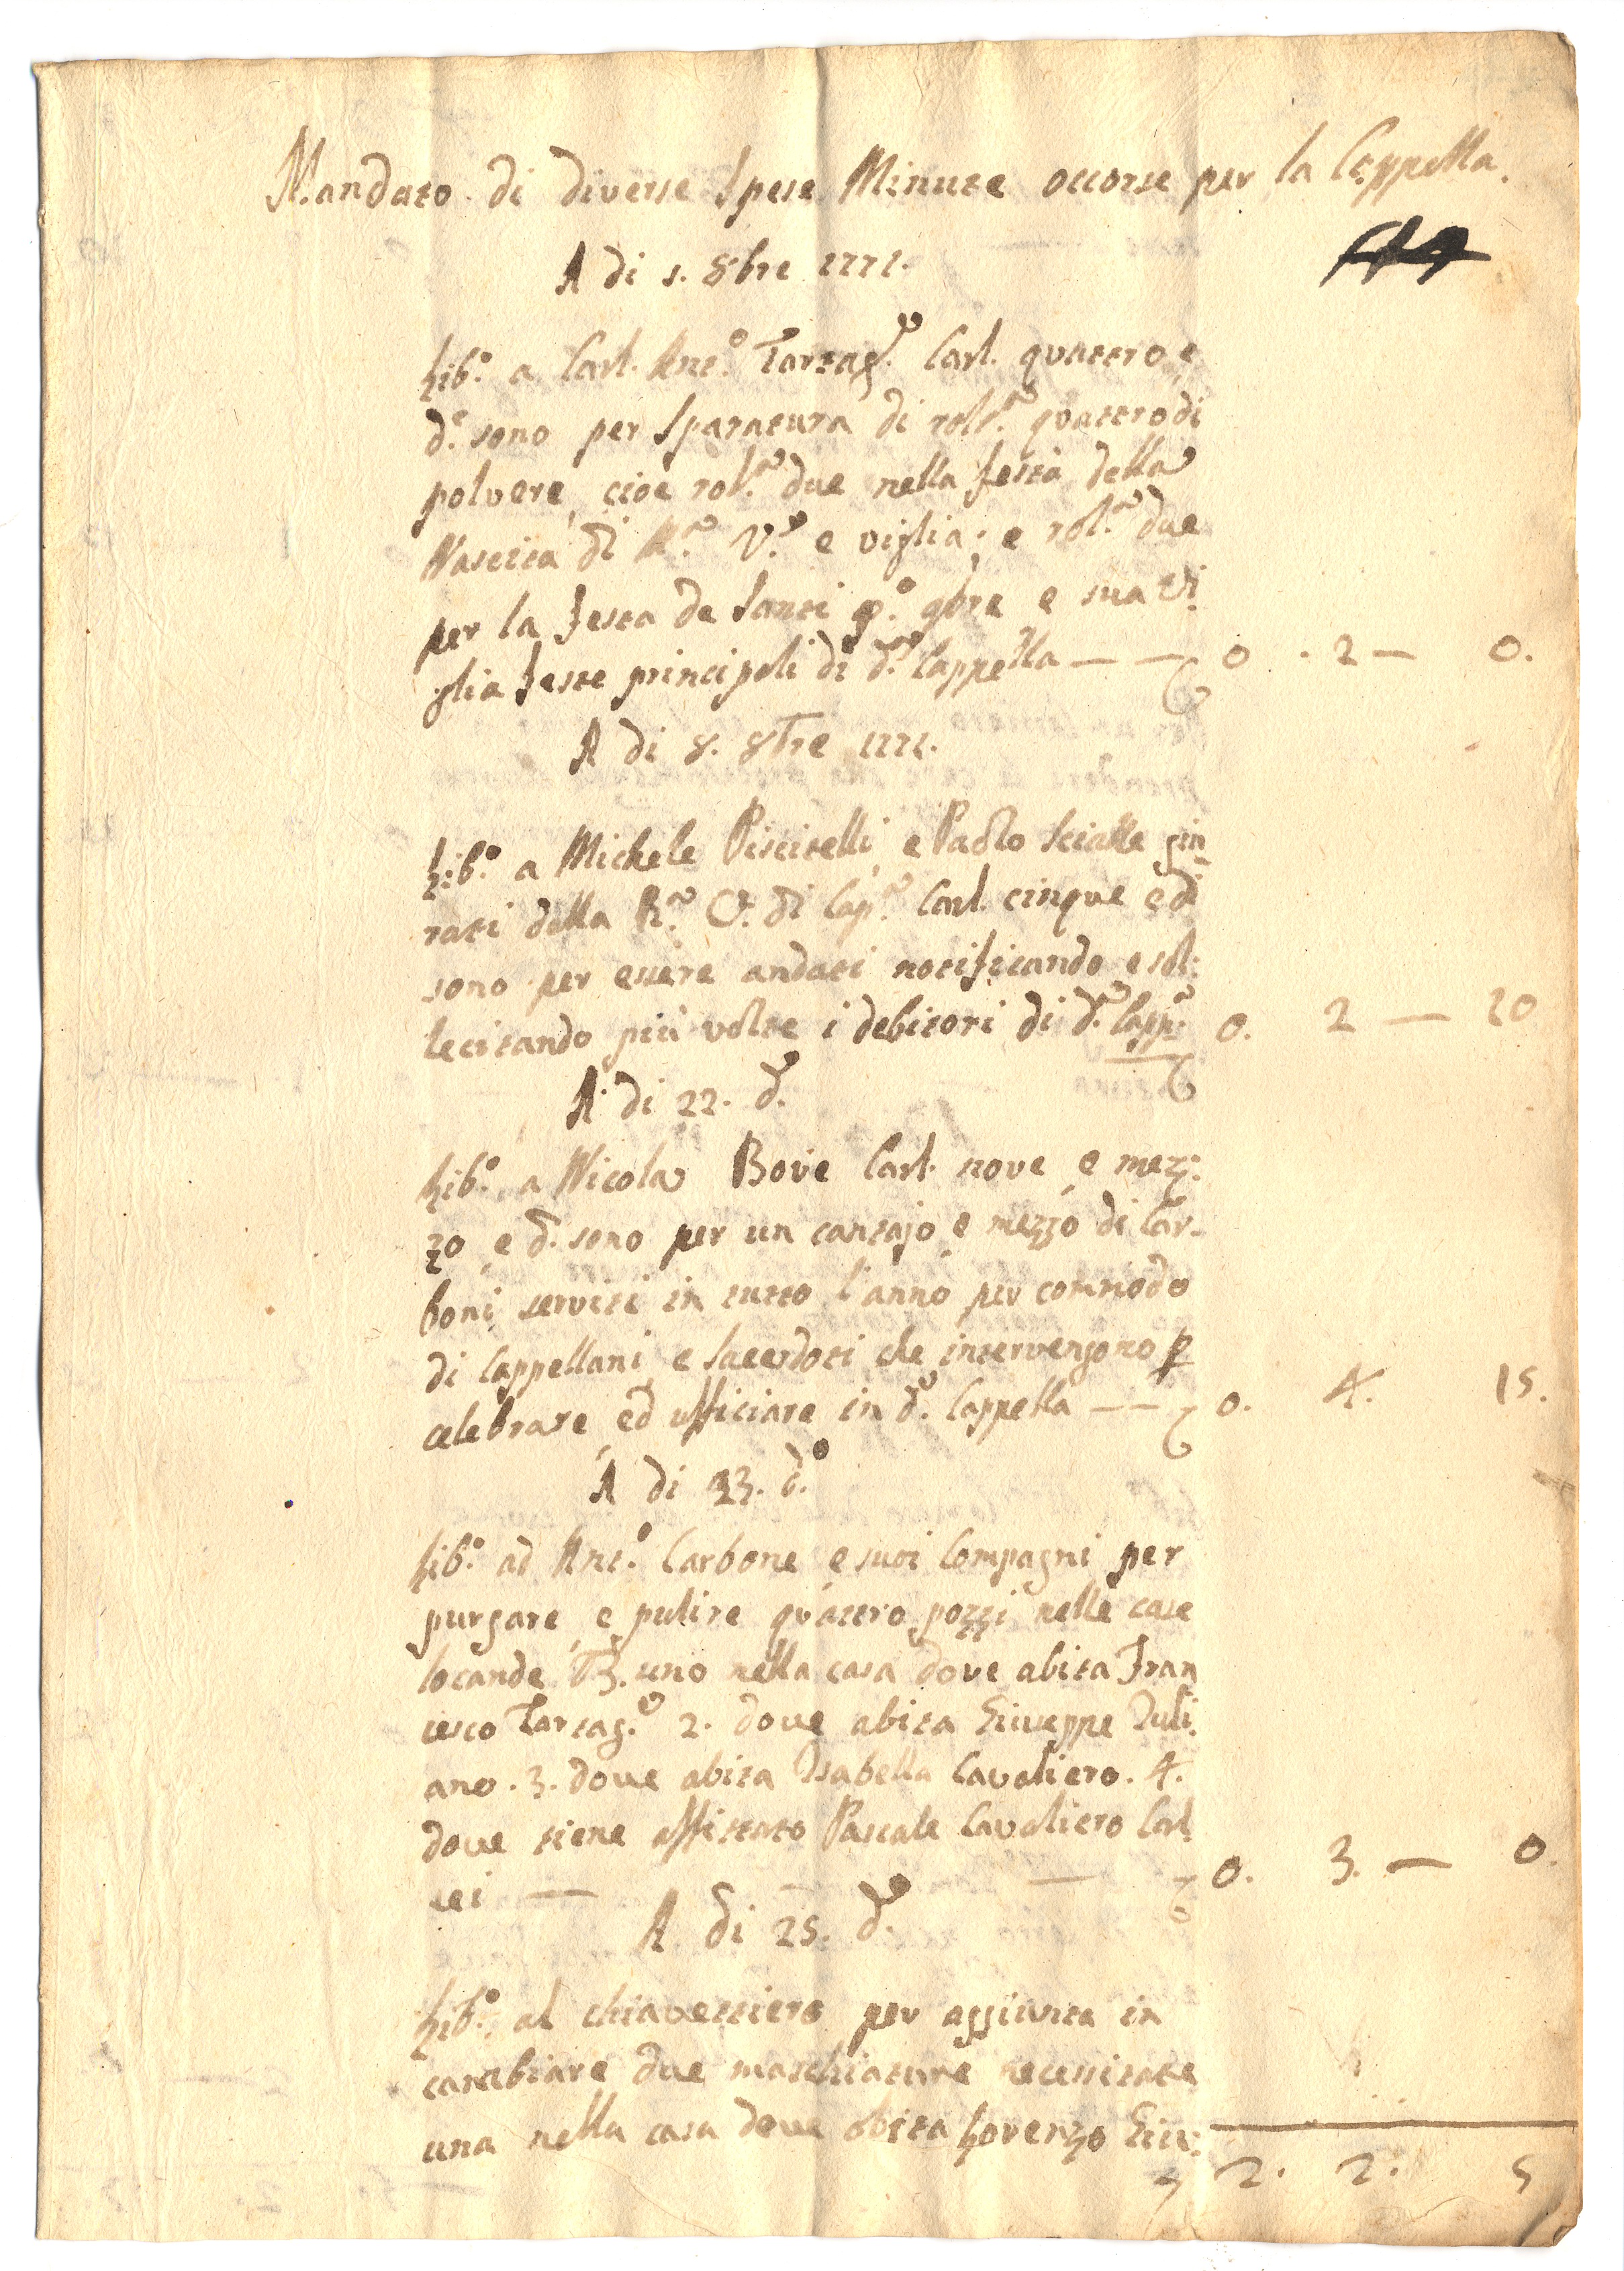 Mandato di diverse Spese Minute occorse per la Cappella.
A di 1. 8bre 1771.
Lib.º a Carl. Ant.º Tartag.ª Carl. quattro, e
d.i sono per Sparatura di rot.ª quattro di
polvere, cioe rot.ª due nella festa della
Nascita di M.ª V.e e vigilia; e rot.ª due
per la festa de Santi p.º 9bre e sua vi
glia feste principali di d.ª Cappella — — 0 . 2 — 0.
A di 8. 8bre 1771.
Lib.º a Michele Piscitelli, e Paolo Scialle giu
rati della R.ª C. di Cap.ª Carl. cinque e di
sono per essere andati notificando, e sol:
lecitando più volte i debitori di d.ª Capp.ª 0. 2 — 10
A di 22. d.º
Lib.º a Nicola Bove Carl. nove, e mez:
zo, e d. sono per un cantajo, e mezzo di Car-
boni serviti in tutto l'anno per commodo
di Cappellani, e Sacerdoti che intervengono p
celebrare, ed ufficiare in d.ª Cappella — — 0. 4. 15.
A di 23. d.º
Lib.º ad Ant.º Carbone, e suoi Compagni per
purgare, e pulire quattro pozzi nelle case
locande uno nella casa dove abita Fran
cesco Tartag.ª 2. dove abita Giuseppe Iuli.
ano. 3. dove abita Isabella Cavaliero. 4.
dove tiene affittato Pascale Cavaliero Carl
sei — — 0. 3. — 0.
A di 25. d.º
Lib.º al chiavettiero per aggiunta in
cambiare due maschiature necessitate
una nella casa dove abita Lorenzo Giu:
2. 2. 5